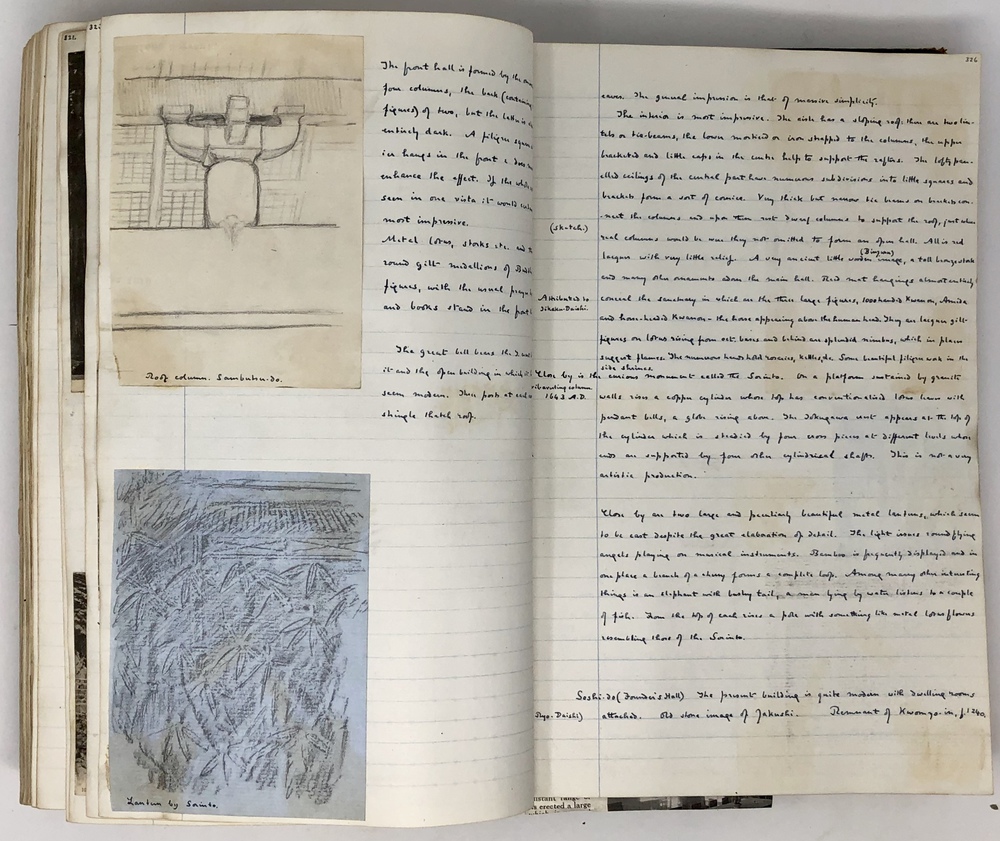 The front hall is formed by the
four columns, the back (containing
figures) of two, but the latter is
entirely dark. A filigree
hangs in the front & does
enhance the effect. If the whole
seen in one vista it would
most impressive.
Metal lotus, storks etc. and
round gilt medallions of
figures, with the usual
and books stand in the
The great bell bears the
it and the open building in which
seem modern. Three posts at each
shingle thatch roof.
Roof column. Sambutsu-do.
Lantern by Sorinto.
226
eaves. The general impression is that of massive simplicity.
The interior is most impressive. The aisle has a sloping roof; there are two lin-
tels or tie-beams, the lower morticed or iron strapped to the columns, the upper
bracketed and little caps in the centre help to support the rafters. The lofty pan-
elled ceilings of the central part have numerous subdivisions into little squares and
brackets form a sort of cornice. Very thick but narrow tie beams on brackets con-
(sketch.)
nect the columns and upon them rest dwarf columns to support the roof, just where
real columns would be were they not omitted to form an open hall. All is red
(Binzuru)
lacquer with very little relief. A very ancient little wooden image, a tall bronze stork
and many other ornaments adorn the main hall. Red mat hangings almost entirely
Attributed to
Jikaku-Daishi.
conceal the sanctuary in which are the three large figures, 1000 handed Kwannon, Amida
and horse-headed Kwannon – the horse appearing above the human head. They are lacquer gilt
figures on lotus rising from oct. bases and behind are splendid nimbus, which in places
suggest flames. The numerous hands hold rosaries, kettles, &c. Some beautiful filigree work in the
side shrines.
Close by is the curious monument called the Sorinto. On a platform sustained by granite
column
1643 A.D.
walls rises a copper cylinder whose top has conventionalized lotus leaves with
pendant bells, a globe rising above. The Tokugawa crest appears at the top of
the cylinder which is steadied by four cross pieces at different levels whose
ends are supported by four other cylindrical shafts. This is not a very
artistic production.
Close by are two large and peculiarly beautiful metal lanterns, which seem
to be cast despite the great elaboration of detail. The light issues round flying
angels playing on musical instruments. Bamboo is frequently displayed and in
one place a branch of a cherry forms a complete loop. Among many other interesting
things is an elephant with bushy tail, a man lying by water listens to a couple
of fish. From the top of each rises a pole with something like metal lotus flowers
resembling those of the Sorinto.
Soshi-do (Founder's Hall) The present building is quite modern with dwelling rooms
Daishi)
attached. Old stone image of Yakushi. Remnant of Kwomyo-in, p. 1240.
instant range of
s erected a large